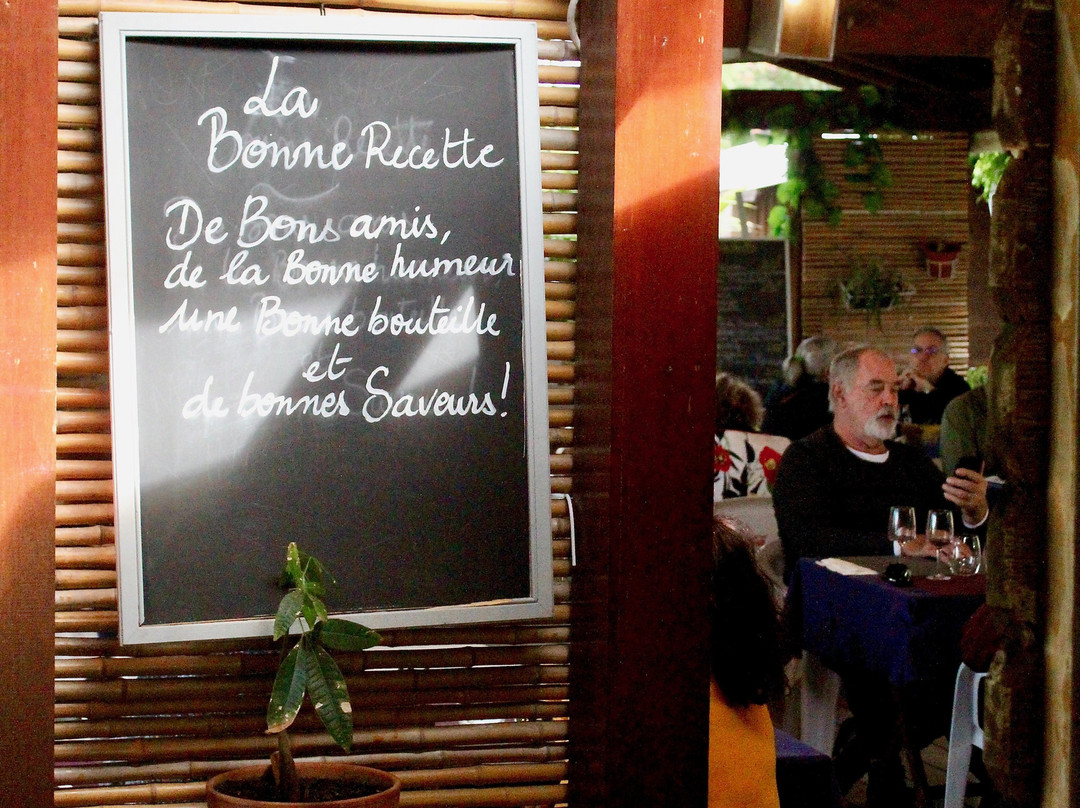 La
Bonne Recette
De Bons amis,
de la Bonne humeur,
une Bonne bouteille
et
de bonnes Saveurs!